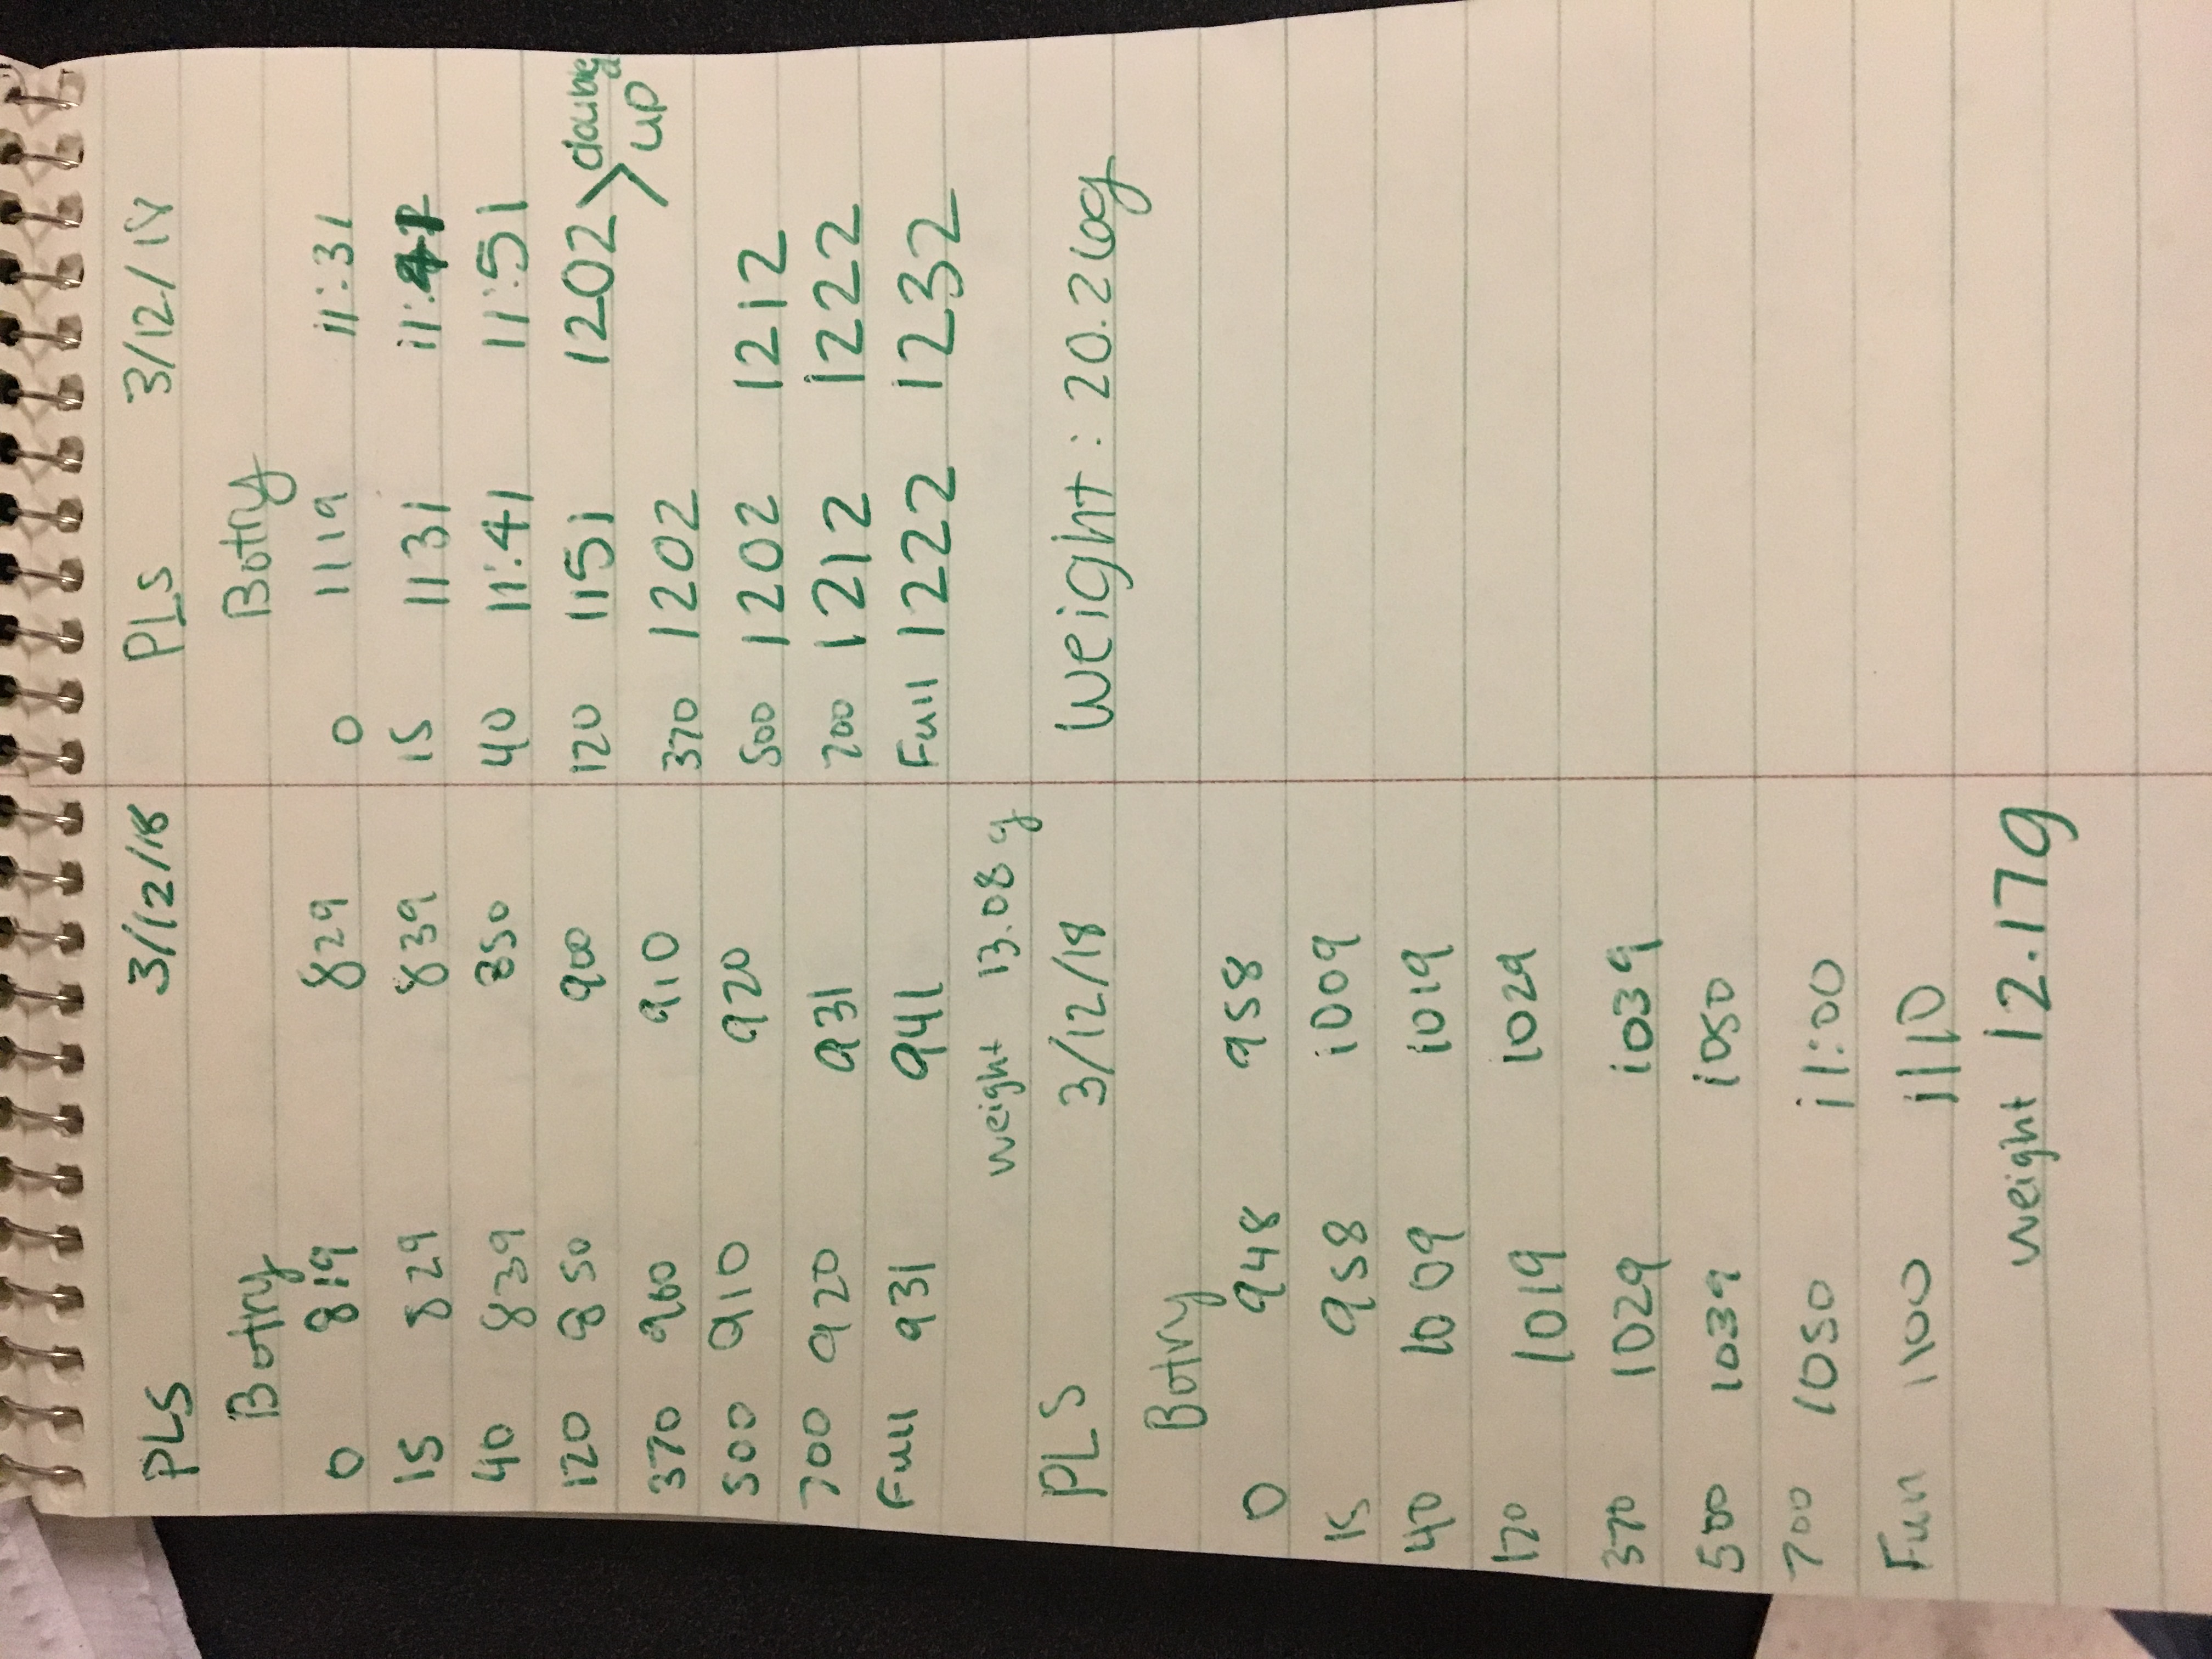 PLS 3/12/18
Botry
0 819 829
15 829 839
40 839 850
120 850 900
370 900 910
500 910 920
700 920 931
Full 931 941
weight 13.08 g
PLS 3/12/18
Botry
0 948 958
15 958 1009
40 1009 1019
120 1019 1029
370 1029 1039
500 1039 1050
700 1050 11:00
Full 1100 1110
weight 12.17g
PLS 3/12/18
Botry
0 1119 11:31
15 1131 11:41
40 11:41 11:51
120 1151 1202 doubled
370 1202 up
500 1202 1212
700 1212 1222
Full 1222 1232
Weight: 20.26g